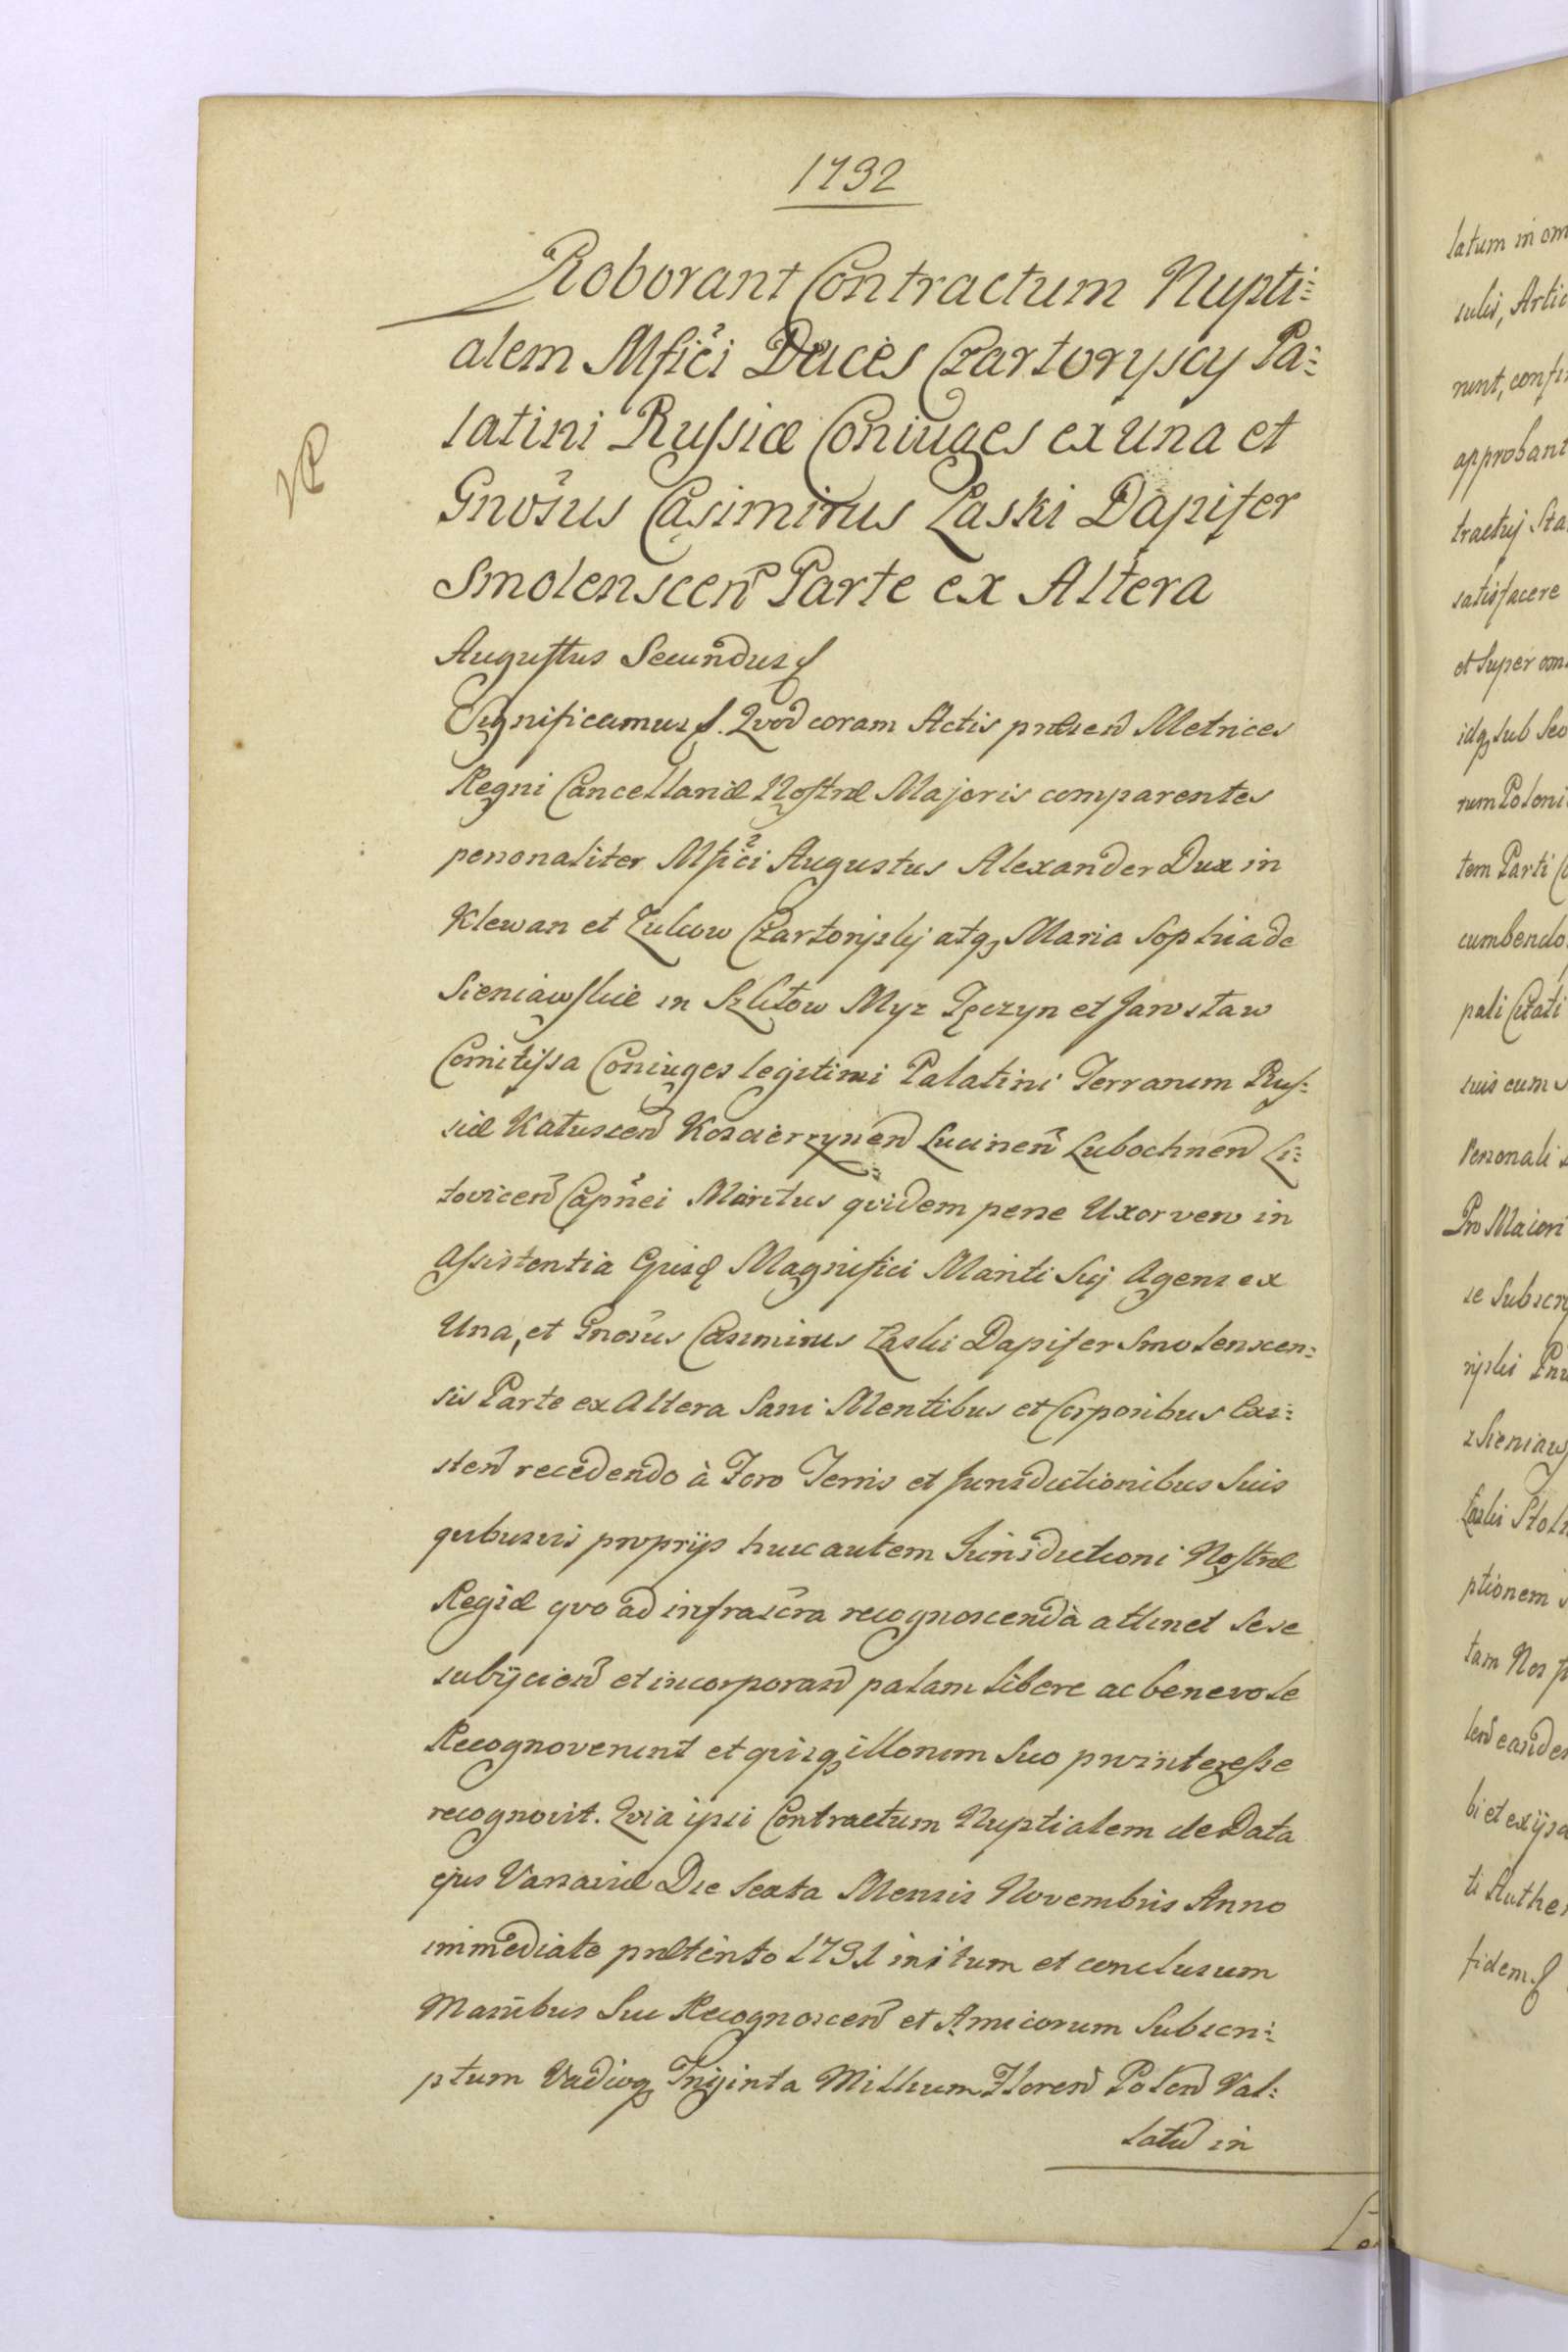 1732
Roborant Contractum Nupti=
alem Mfici Duces Czartoryscy Pa=
latini Russiæ Coniuges ex una et
Gnosus Casimirus Łaski Dapifer
Smolenscen Parte ex Altera
Augustus Secundus
Significamus Quod coram Actis præsen Metrices
Regni Cancellariæ Nostræ Majoris comparentes
personaliter Mfici Augustus Alexander Dux in
Klewan et Zukow Czartoryski atq Maria Sophia de
Sieniawskie in Szkłow Mysz Tęczyn et Jarosław
Comitissa Coniuges legitimi Palatini Terrarum Rus=
siæ Kałuscen Koscierzynen Lucinen Lubochnen La=
tovicen Capnei Maritus quidem per se Uxor vero in
Assistentia Ejusd Magnifici Mariti Sui Agens ex
Una, et Gnosus Casimirus Łaski Dapifer Smolenscen=
sis Parte ex Altera Sani Mentibus et Corporibus Exi=
sten recedendo à Foro Terris et Jurisdictionibus Suis
quibusvis proprijs huic autem Jurisdictioni Nostræ
Regiæ quo ad infrascra recognoscenda attinet sese
subijcien et incorporan palam libere ac benevole
Recognoverunt et quisq illorum Suo pro interesse
recognovit. Quia ipsi Contractum Nuptialem de Data
ejus Varsaviæ Die Sexta Mensis Novembris Anno
immediate præterito 1731 initum et conclusum
Manibus Suis Recognoscen et Amicorum Subscri=
ptum Vadioq Triginta Millium Floren Polon Val=
latu in
latum in om
sulis, Artic
runt, confi
approbant
tractuj Sta
satisfacere
et Super om
idq sub Seo
rum Poloni
tem Parti
cumbendo
pali Citati
suis cum
Personali
Pro Maiori
se Subscry
ryski
z Sieniaw
Łaski Stol
ptionem
tam Nos
eander
bi et
ti Authe
fidem